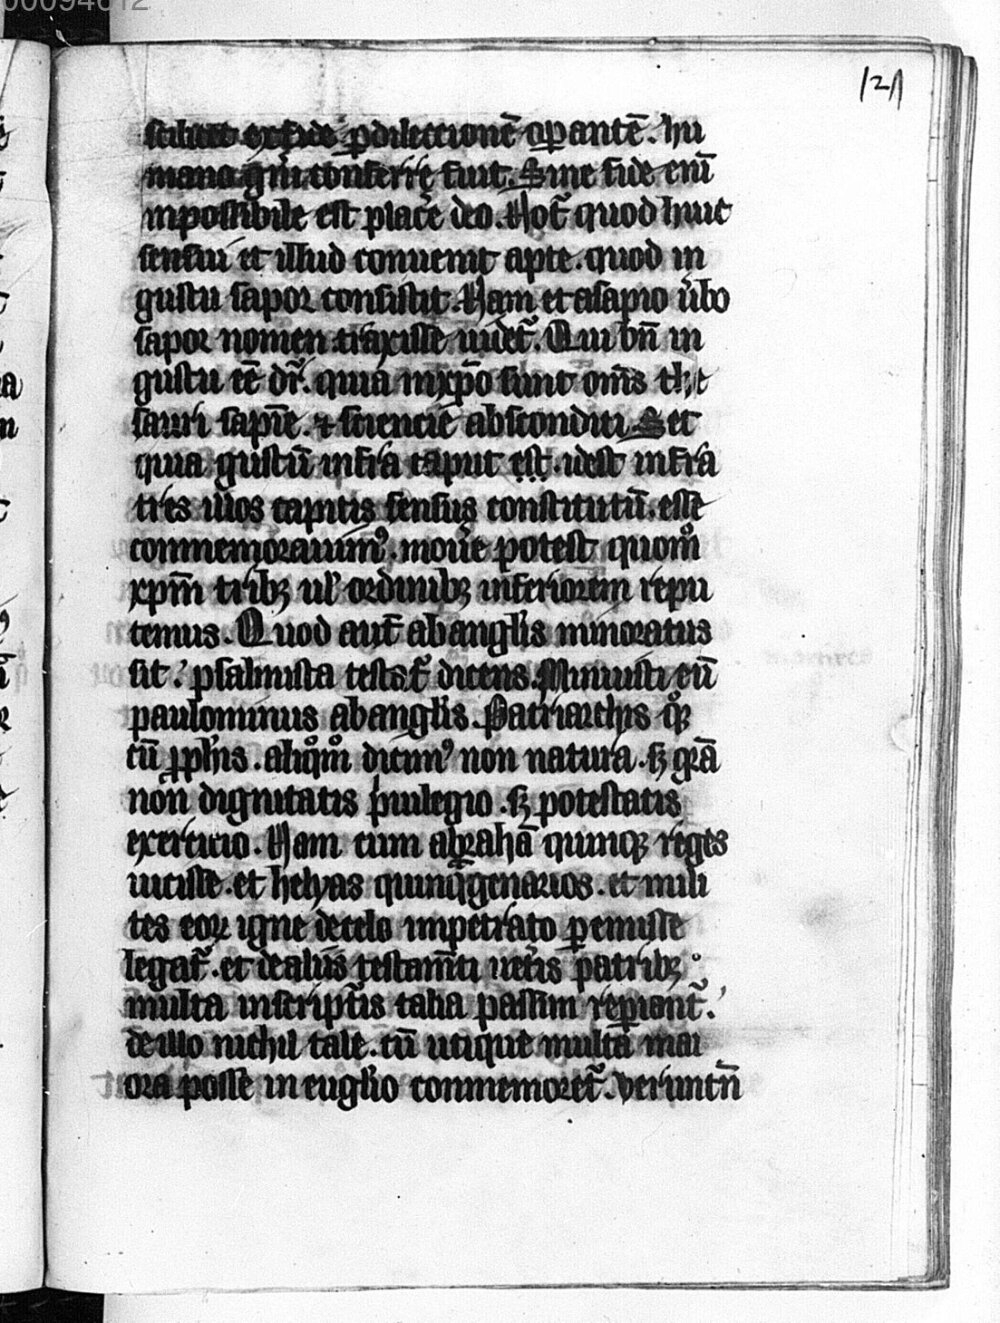 00094612
121
scilicet ex fide ꝑ dilectionē oꝑantē. hu
mano gn̄i conferre fuit. Sine fide eni̅
inpossibile est place̅ deo. Not̄ quod huic
sensui et illud conuenit apte. quod in
gustu sapor consistit. Nam et a sapio ūbo
sapor nomen traxisse uidet̄. Qui bn̄ in
gustu ēē dr̄. quia in xp̄o sunt om̄s the
sauri sapīe. ⁊ sciencie absconditi. Set
quia gustū infra caput est. idest infra
tres uiuos capitis sensus constitutū. esse
conmemorauimꝰ. mouē potest quom̊
xp̄m tribꝫ ul̓ ordinibꝫ inferiorem repu
temus. Quod aut̄ ab angl̓is minoratus
sit. psalmista testat̄ dicens. Minuisti eū
paulominus ab angl̓is. Patriarchis qͦꝫ
cū ꝓph̓is. aliqͦm̊ dicimꝰ non natura. sꝫ gr̄a
non dignitatis p̓uilegio. sꝫ potestatis
exercicio. Nam cum abrahā quinqꝫ reges
uicisse. et helyas quinq̄genarios. et mili
tes eoꝝ igne de celo impetrato ꝑemisse
legat̄. et de aliis testam̄ti uet̓is patribꝫ
multa in script̓is talia passim reꝑiant̄.
de illo nichil tale. cū utique multa mai
ora posse in eugl̓io conmemoret̄. veruntn̄